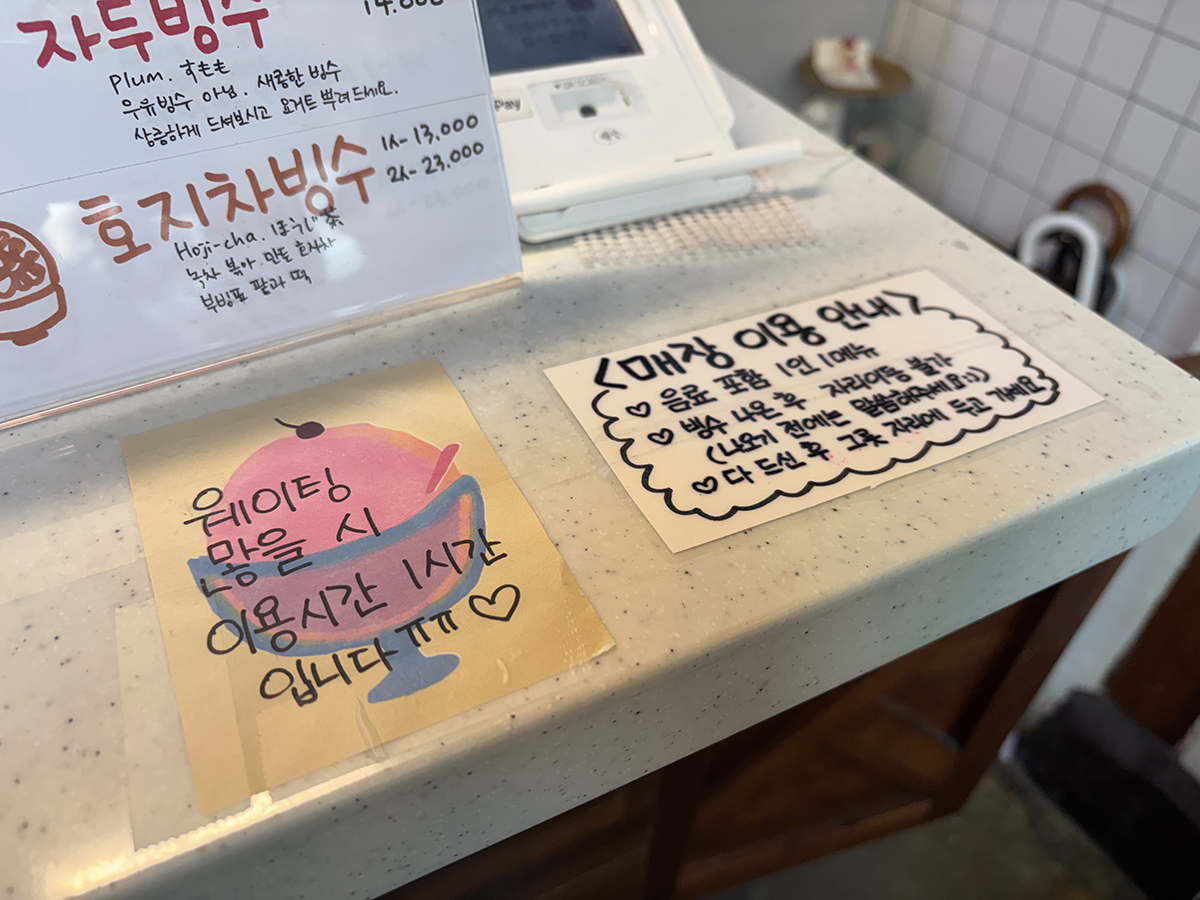 자두빙수
14.000
Plum. すもも
우유빙수 아님. 새콤한 빙수
상큼하게 드셔보시고 요거트 뿌려드세요.
호지차빙수
1人- 13,000
2人- 23,000
Hoji-cha. ほうじ茶
녹차 볶아 만든 호지차
부빙포 팥과 떡
Pay
웨이팅
많을 시
이용시간 1시간
입니다 ㅠㅠ ♡
<매장 이용 안내>
♡ 음료 포함 1인 1메뉴
♡ 빙수 나온 후 자리이동 불가
(나오기 전에는 말씀해주세요:))
♡ 다 드신 후 그릇 자리에 두고 가세요